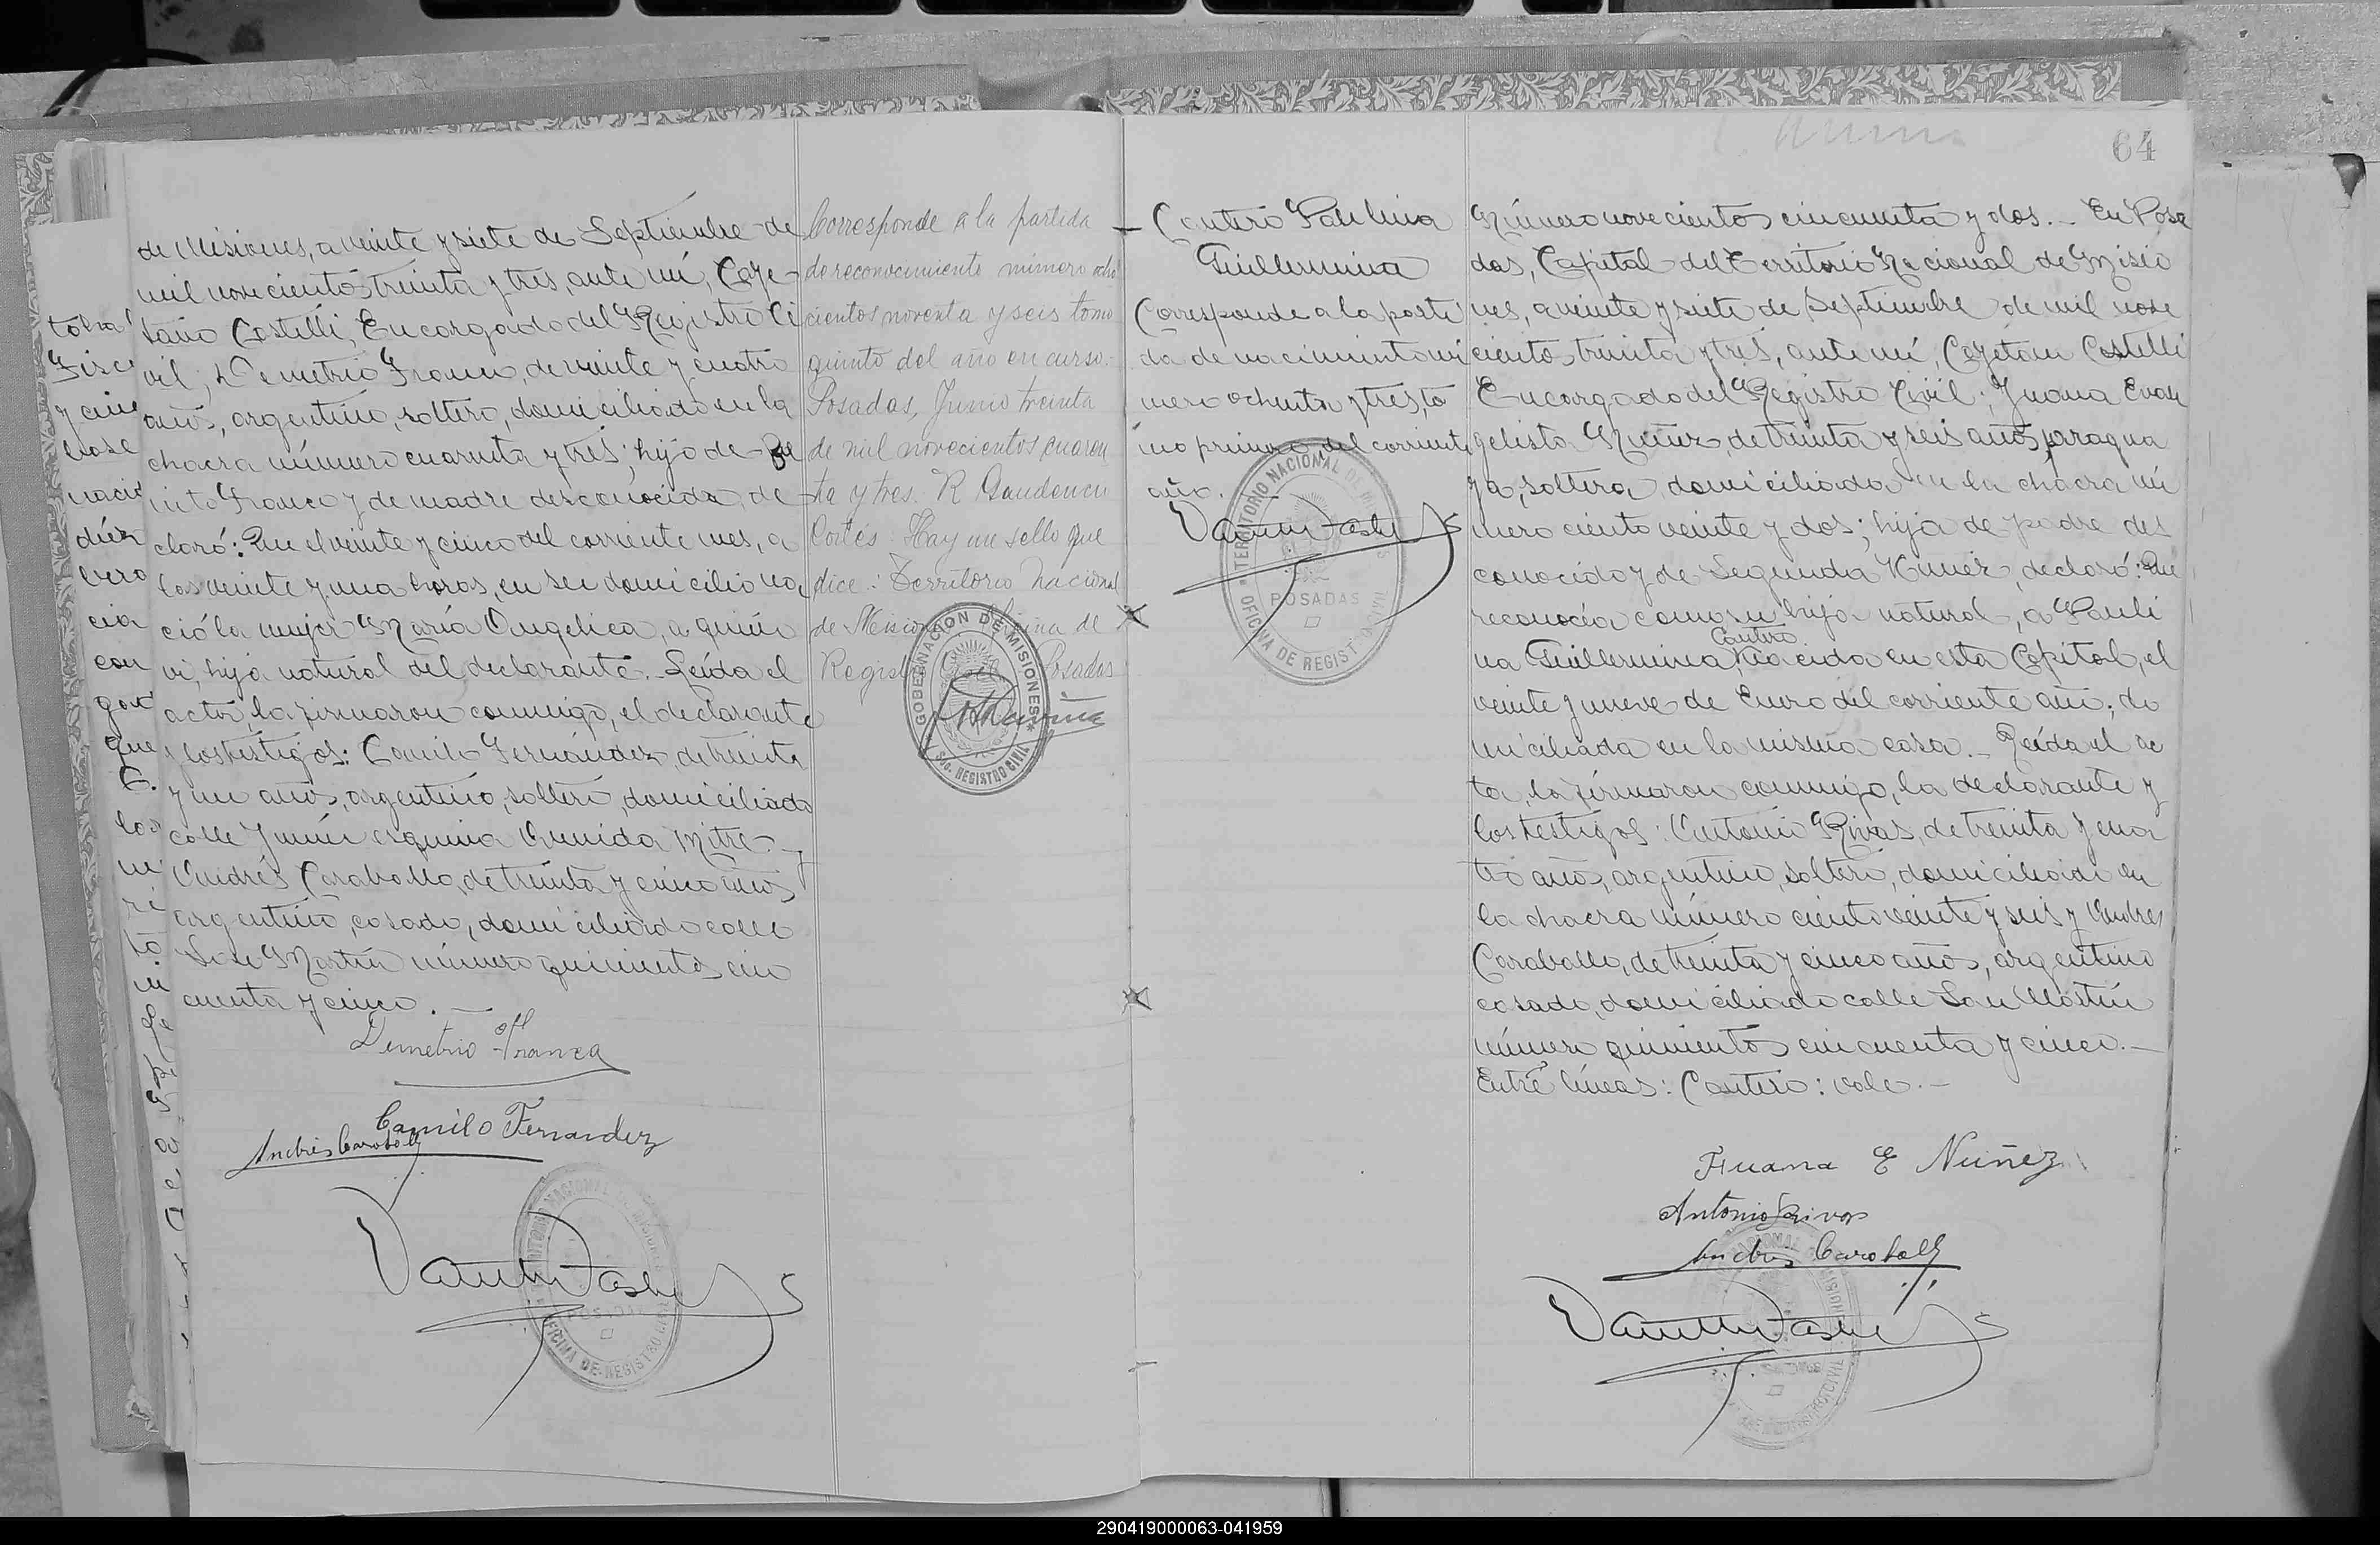 de Misiones, a veinte y siete de Septiembre de
mil novecientos treinta y tres, ante mí, Caye-
tano Castelli, Encargado del Registro Ci
vil, Demetrio Franco, de veinte y cuatro
años, argentino, soltero, domiciliado en la
chacra número cuarenta y tres; hijo de
Franco y de madre desconocida, de
claró: Que el veinte y cinco del corriente mes, a
las veinte y una horas, en su domicilio na
ció la mujer María Angelica, a quién
ví, hija natural del declarante. Leída el
acta, la firmaron conmigo, el declarante
y los testigos: Camilo Fernández, de treinta
y un años, argentino, soltero, domiciliado
calle Junín esquina Avenida Mitre y
Andrés Caraballo, de treinta y cinco años
argentino, casado, domiciliado calle
San Martín número quinientos cin
cuenta y cinco.
Demetrio Franco
Camilo Fernandez
Andrés Caraballo
Corresponde a la partida
de reconocimiento número ocho
cientos noventa y seis tomo
quinto del año en curso.-
Posadas, Junio treinta
de mil novecientos cuaren
ta y tres. R Gaudencio
Cortés. Hay un sello que
dice: Territorio Nacional
de Misiones Oficina de
Registro Civil Posadas
GOBERNACION DE MISIONES
REGISTRO CIVIL
64
Cantero Paulina
Guillermina
Corresponde a la parti
da de nacimiento nú
mero ochenta y tres, to
mo primero del corriente
año.
TERRITORIO NACIONAL DE MISIONES
POSADAS
OFICINA DE REGISTRO CIVIL
Número novecientos cincuenta y dos.- En Posa
das, Capital del Territorio Nacional de Misio
nes, a veinte y siete de Septiembre de mil nove
cientos treinta y tres, ante mí, Cayetano Castelli
Encargado del Registro Civil; Juana Evan
gelista Nuñez, de treinta y seis años, paragua
ya, soltera, domiciliada en la chacra nú
mero ciento veinte y dos; hija de padre des
conocido y de Segunda Nuñez, declaró: Que
reconocía como su hija natural, a Pauli
na Guillermina Cantero, nacida en esta Capital, el
veinte y nueve de Enero del corriente año; do
miciliada en la misma casa.- Leída el ac
ta, la firmaron conmigo, la declarante y
los testigos: Antonio Rivas, de treinta y cua
tro años, argentino, soltero, domiciliado en
la chacra número ciento veinte y seis y Andrés
Caraballo, de treinta y cinco años, argentino
casado, domiciliado calle San Martín
número quinientos cincuenta y cinco.-
Entre líneas: Cantero: vale.-
Juana E Nuñez
Antonio Rivas
Andrés Caraballo
290419000063-041959